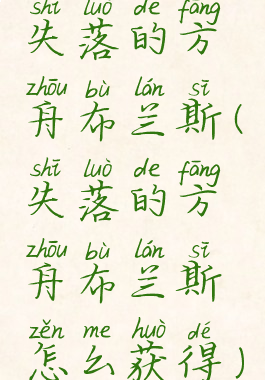 shī luò de fāng
失落的方
zhōu bù lán sī
舟布兰斯(
shī luò de fāng
失落的方
zhōu bù lán sī
舟布兰斯
zěn me huò dé
怎么获得)